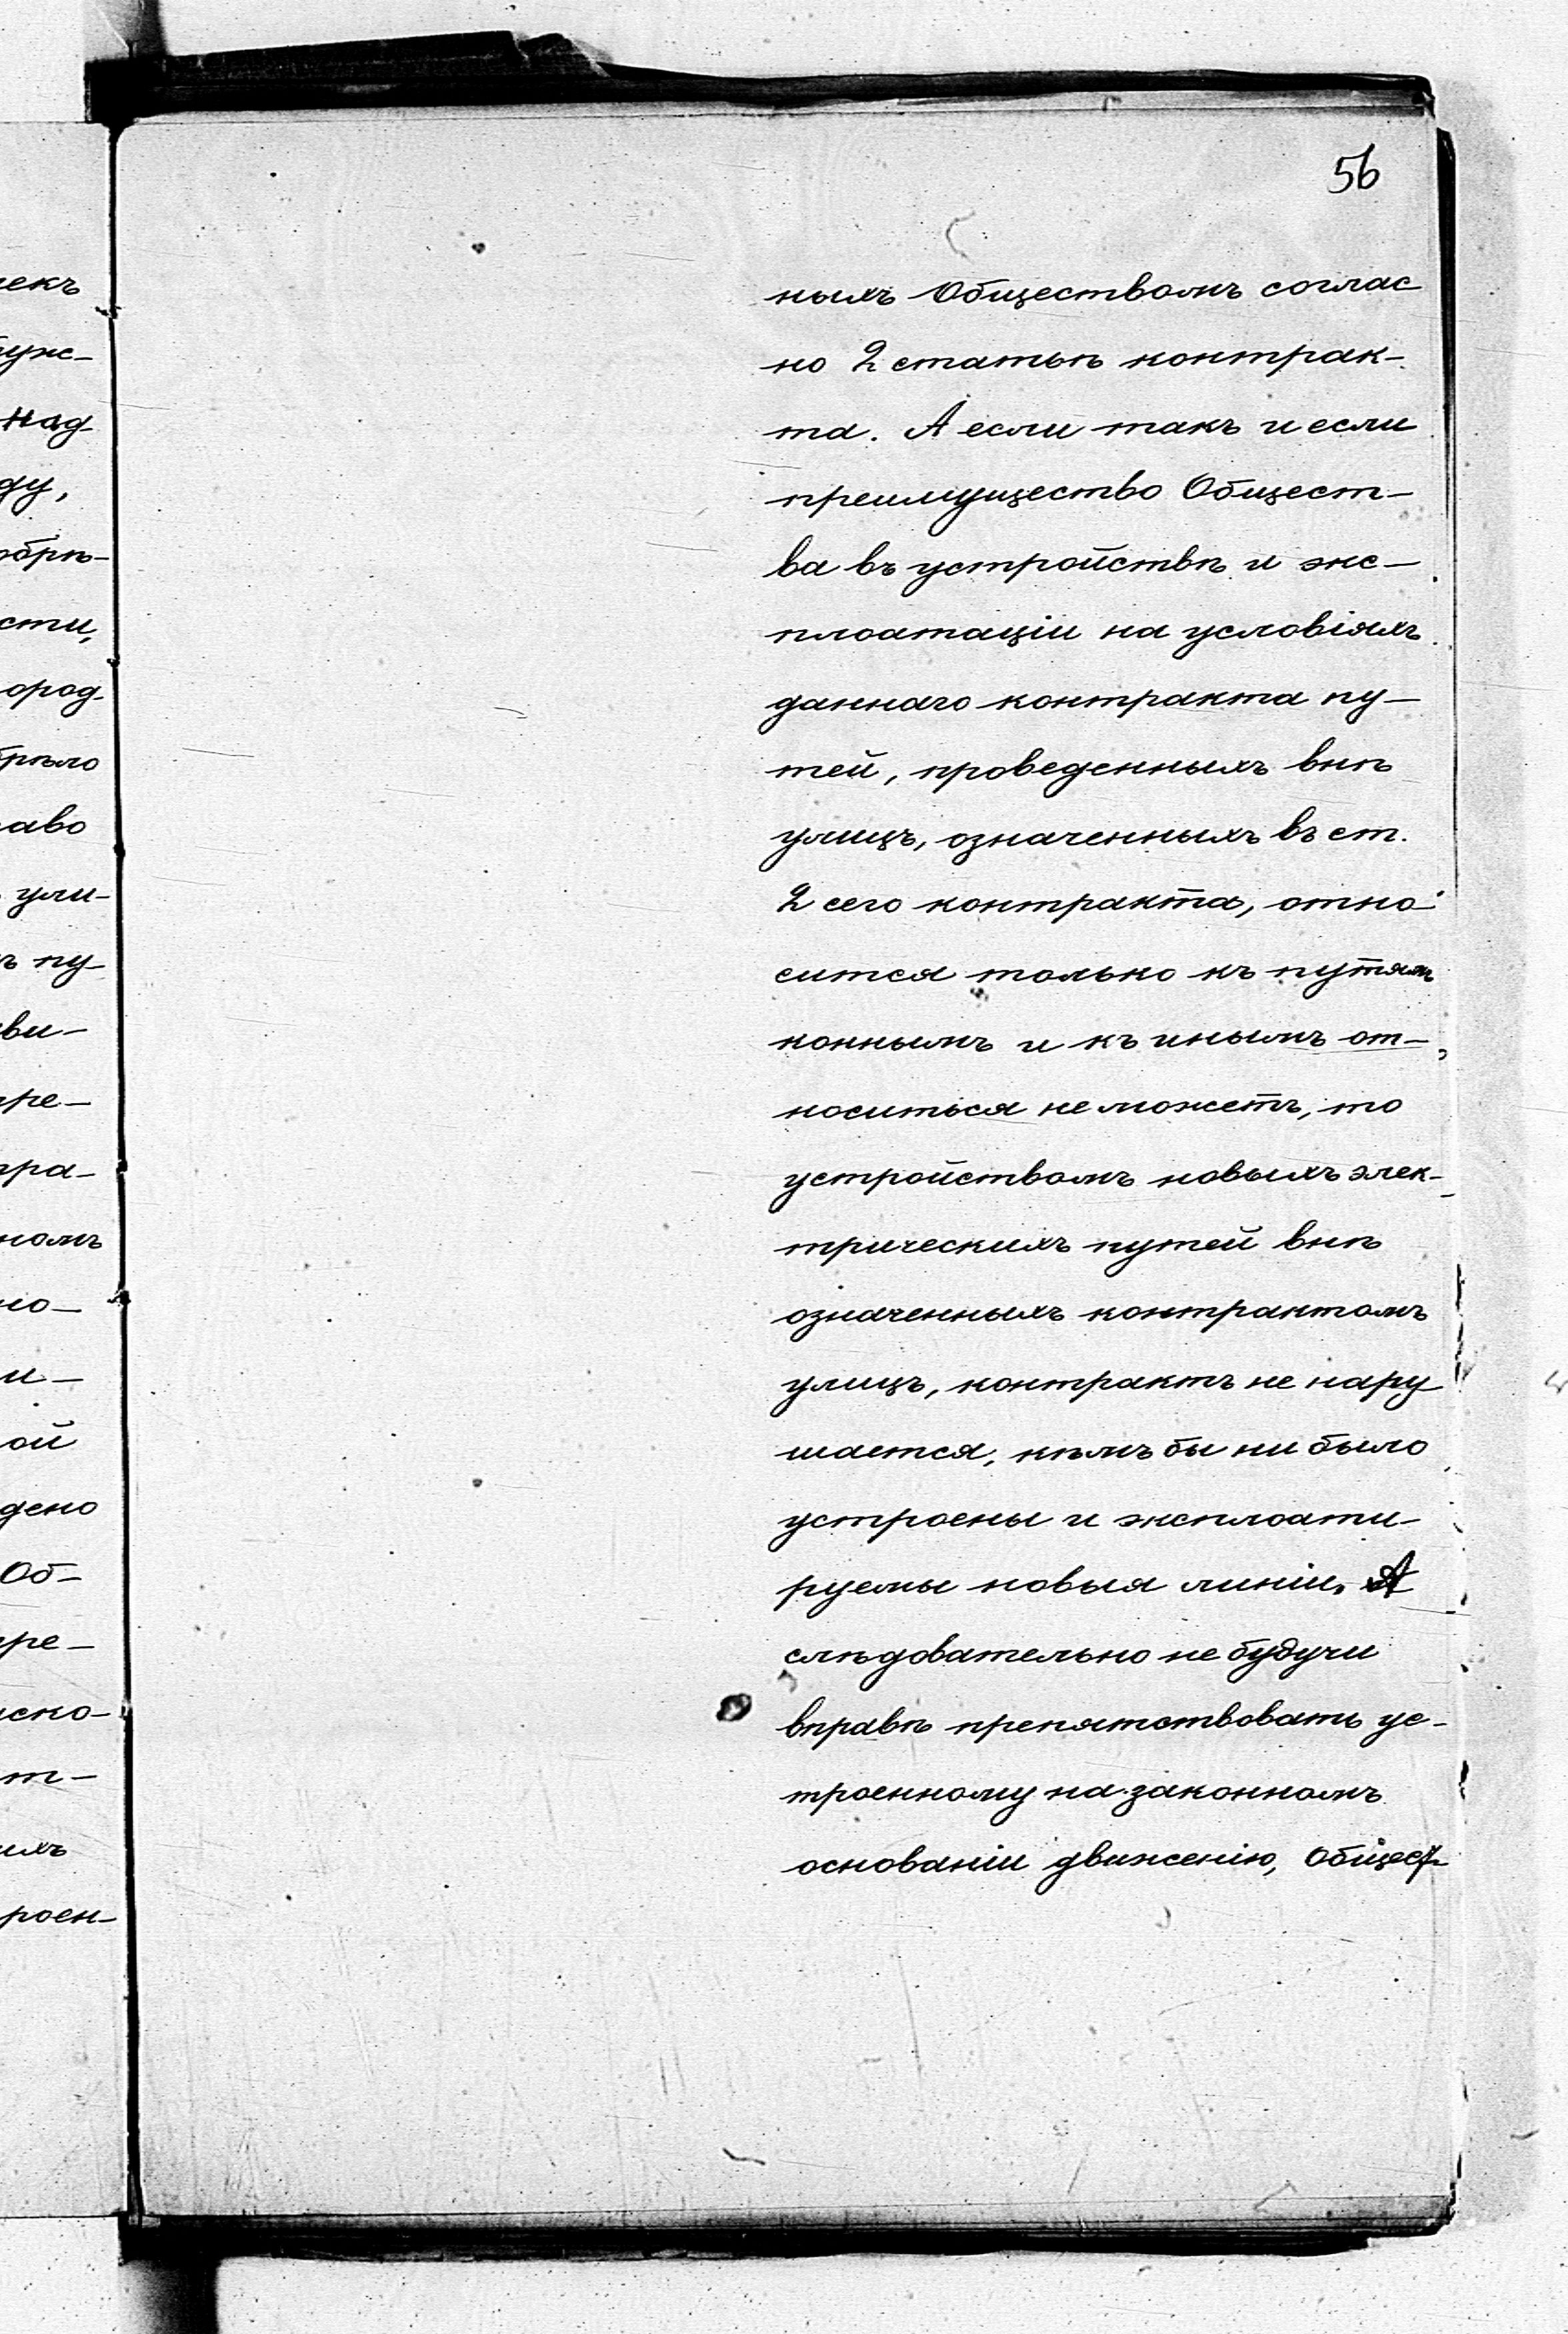 56
ныхъ Обществомъ соглас
но 2 статьѣ контрак-
та. А если такъ и если
преимущество Общест-
ва въ устройствѣ и экс-
плоатаціи на условіяхъ
даннаго контракта пу-
тей, проведенныхъ внѣ
улицъ, означенныхъ въ ст.
2 сего контракта, отно-
сится только къ путямъ
коннымъ и къ инымъ от-
носиться не можетъ, то
устройствомъ новыхъ элек-
трическихъ путей внѣ
означенныхъ контрактомъ
улицъ, контрактъ не нару
шается, кѣмъ бы ни было
устроены и эксплоати-
руемы новыя линіи. А
слѣдовательно не будучи
вправѣ препятствовать ус-
троенному на законномъ
основаніи движенію, Общест-